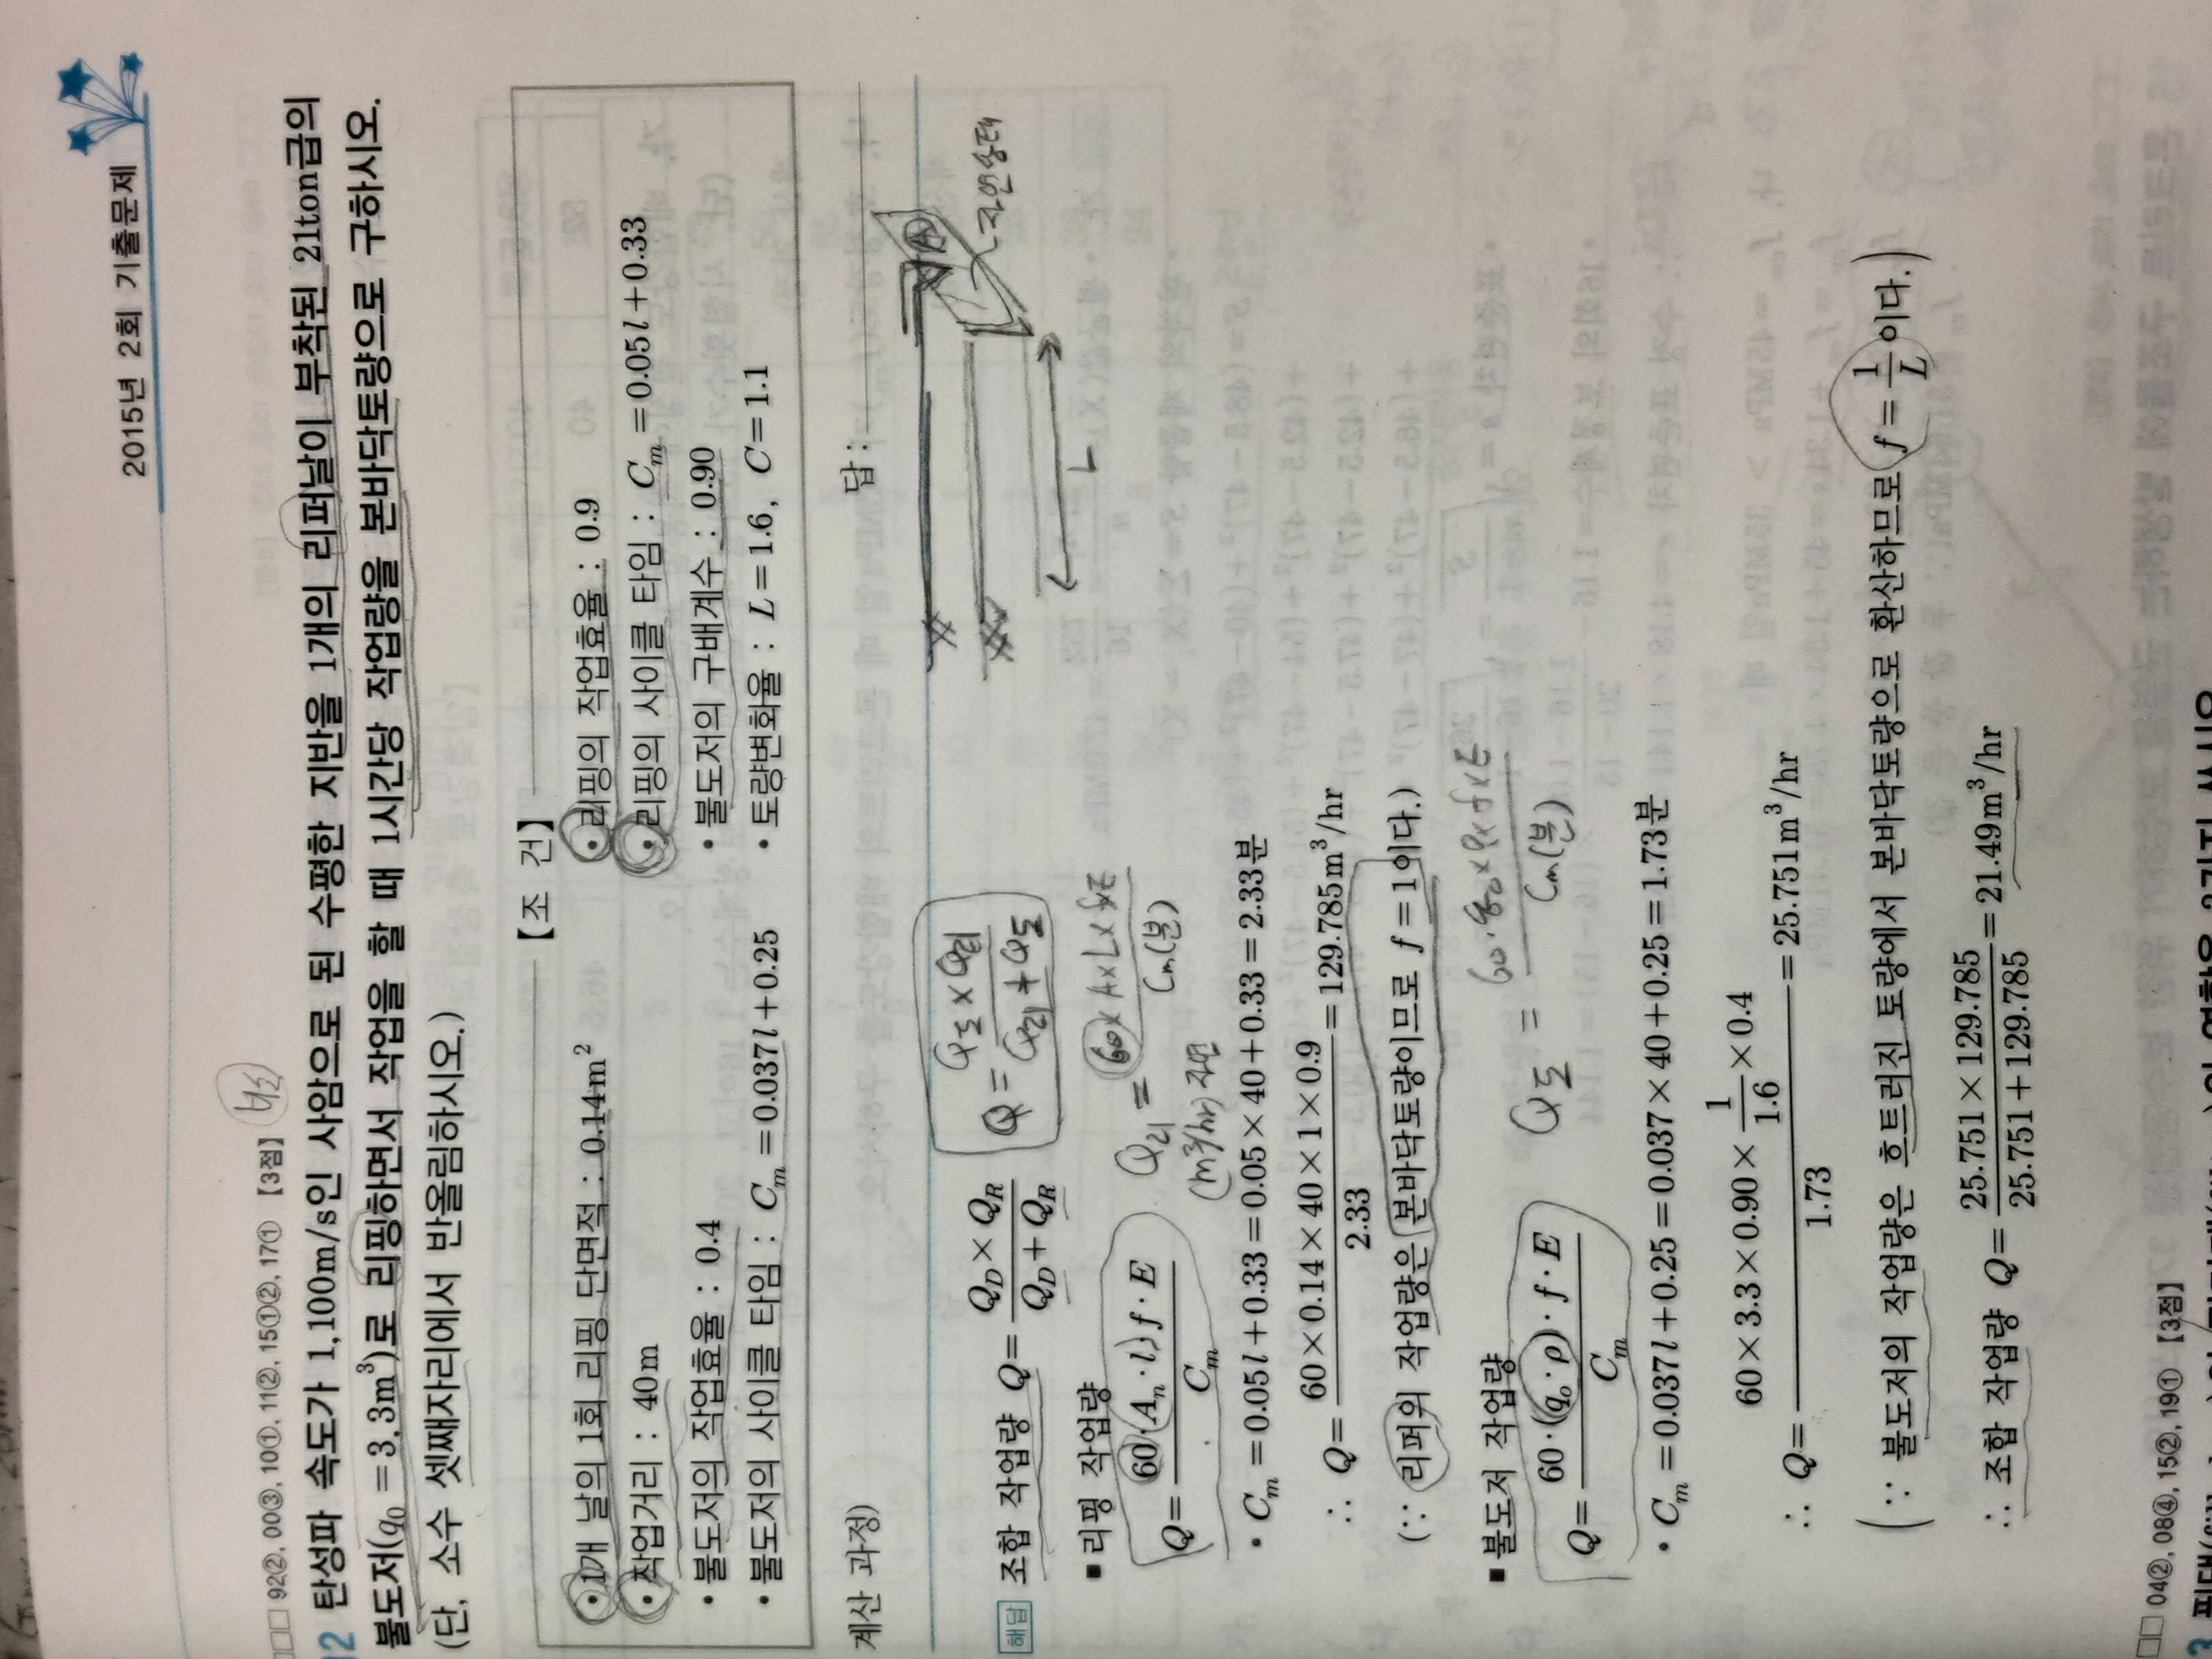 2015년 2회 기출문제
92②, 00③, 10①, 11②, 15①②, 17① 【3점】
12 탄성파 속도가 1,100m/s인 사암으로 된 수평한 지반을 1개의 리퍼날이 부착된 21ton급의
불도저(q₀ = 3.3m³)로 리핑하면서 작업을 할 때 1시간당 작업량을 본바닥토량으로 구하시오.
(단, 소수 셋째자리에서 반올림하시오.)
【조 건】
• 1개 날의 1회 리핑 단면적 : 0.14m² • 리핑의 작업효율 : 0.9
• 작업거리 : 40m • 리핑의 사이클 타임 : Cₘ = 0.05l + 0.33
• 불도저의 작업효율 : 0.4 • 불도저의 구배계수 : 0.90
• 불도저의 사이클 타임 : Cₘ = 0.037l + 0.25 • 토량변화율 : L = 1.6, C = 1.1
계산 과정) 답 :
해답 조합 작업량 Q = (Q_D × Q_R) / (Q_D + Q_R)
Q = (Q도 × Q리) / (Q리 + Q도)
A
자연상태
L
■ 리핑 작업량
Q = 60·(Aₙ·l) f·E / Cₘ
Q리 = 60 × A × L × f × E / Cm(분)
(m³/hr)
• Cₘ = 0.05l + 0.33 = 0.05 × 40 + 0.33 = 2.33분
∴ Q = 60 × 0.14 × 40 × 1 × 0.9 / 2.33 = 129.785m³/hr
(∵ 리퍼의 작업량은 본바닥토량이므로 f = 1이다.)
■ 불도저 작업량
Q = 60·(q₀·ρ)·f·E / Cₘ
Q도 =
Cm(분)
• Cₘ = 0.037l + 0.25 = 0.037 × 40 + 0.25 = 1.73분
∴ Q = 60 × 3.3 × 0.90 × 1/1.6 × 0.4 / 1.73 = 25.751m³/hr
(∵ 불도저의 작업량은 흐트러진 토량에서 본바닥토량으로 환산하므로 f = 1/L 이다.)
∴ 조합 작업량 Q = 25.751 × 129.785 / 25.751 + 129.785 = 21.49m³/hr
04②, 08④, 15②, 19① 【3점】